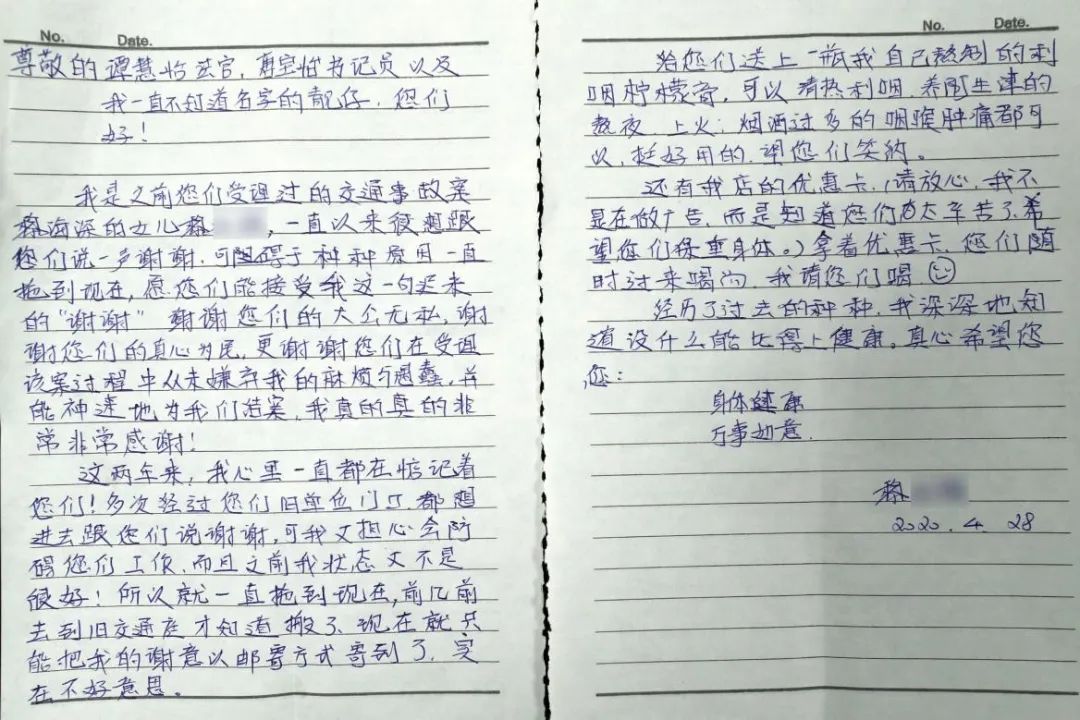 No. Date.
尊敬的谭慧怡法官,惠宝怡书记员以及
我一直不知道名字的靓仔.您们
好!
我是之前您们受理过的交通事故案
蔡海深的女儿蔡,一直以来很想跟
您们说一声谢谢.可阻碍于种种原因一直
拖到现在,愿您们能接受我这一句迟来
的"谢谢" 谢谢您们的大公无私,谢
谢您们的真心为民,更谢谢您们在受理
该案过程中从未嫌弃我的麻烦与愚蠢,并
能神速地为我们结案,我真的真的非
常非常感谢!
这两年来,我心里一直都在惦记着
您们!多次经过您们旧单位门口都想
进去跟您们说谢谢,可我又担心会防
碍您们工作,而且之前我状态又不是
很好!所以就一直拖到现在,前几前
去到旧交通庭才知道搬了、现在就只
能把我的谢意以邮寄方式寄到了.实
在不好意思。
No. Date.
给您们送上一瓶我自己熬制的利
咽柠檬膏,可以清热利咽.养阴生津的
熬夜.上火;烟酒过多的咽喉肿痛都可
以,挺好用的.望您们笑纳。
还有我店的优惠卡,(请放心,我不
是在做广告,而是知道您们太辛苦了.希
望您们保重身体。)拿着优惠卡.您们随
时过来喝,我请您们喝
经历了过去的种种,我深深地知
道没什么能比得上健康。真心希望您
您:
身体健康
万事如意.
蔡
2020.4.28